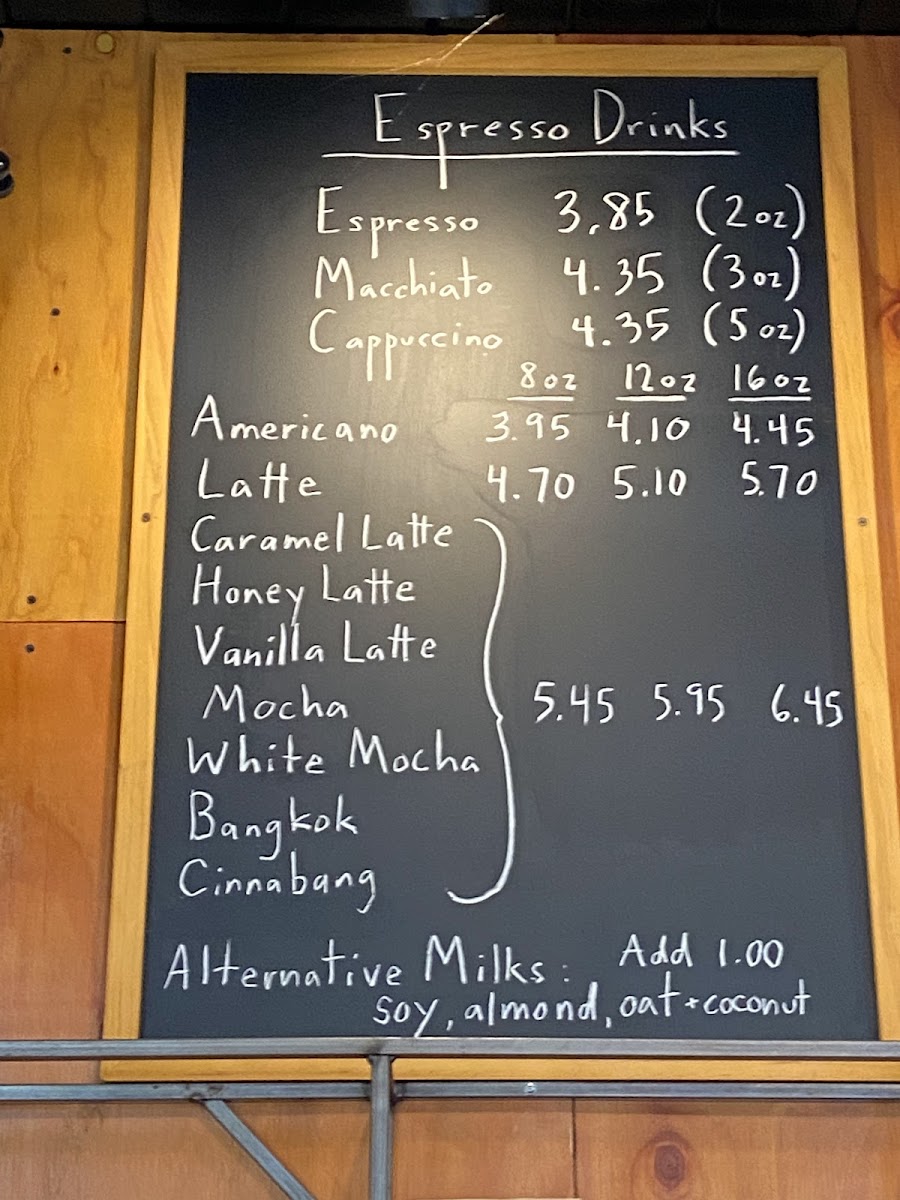 Espresso Drinks
Espresso 3.85 (2oz)
Macchiato 4.35 (3oz)
Cappuccino 4.35 (5oz)
8oz 12oz 16oz
Americano 3.95 4.10 4.45
Latte 4.70 5.10 5.70
Caramel Latte
Honey Latte
Vanilla Latte
Mocha 5.45 5.95 6.45
White Mocha
Bangkok
Cinnabang
Alternative Milks: Add 1.00
soy, almond, oat + coconut